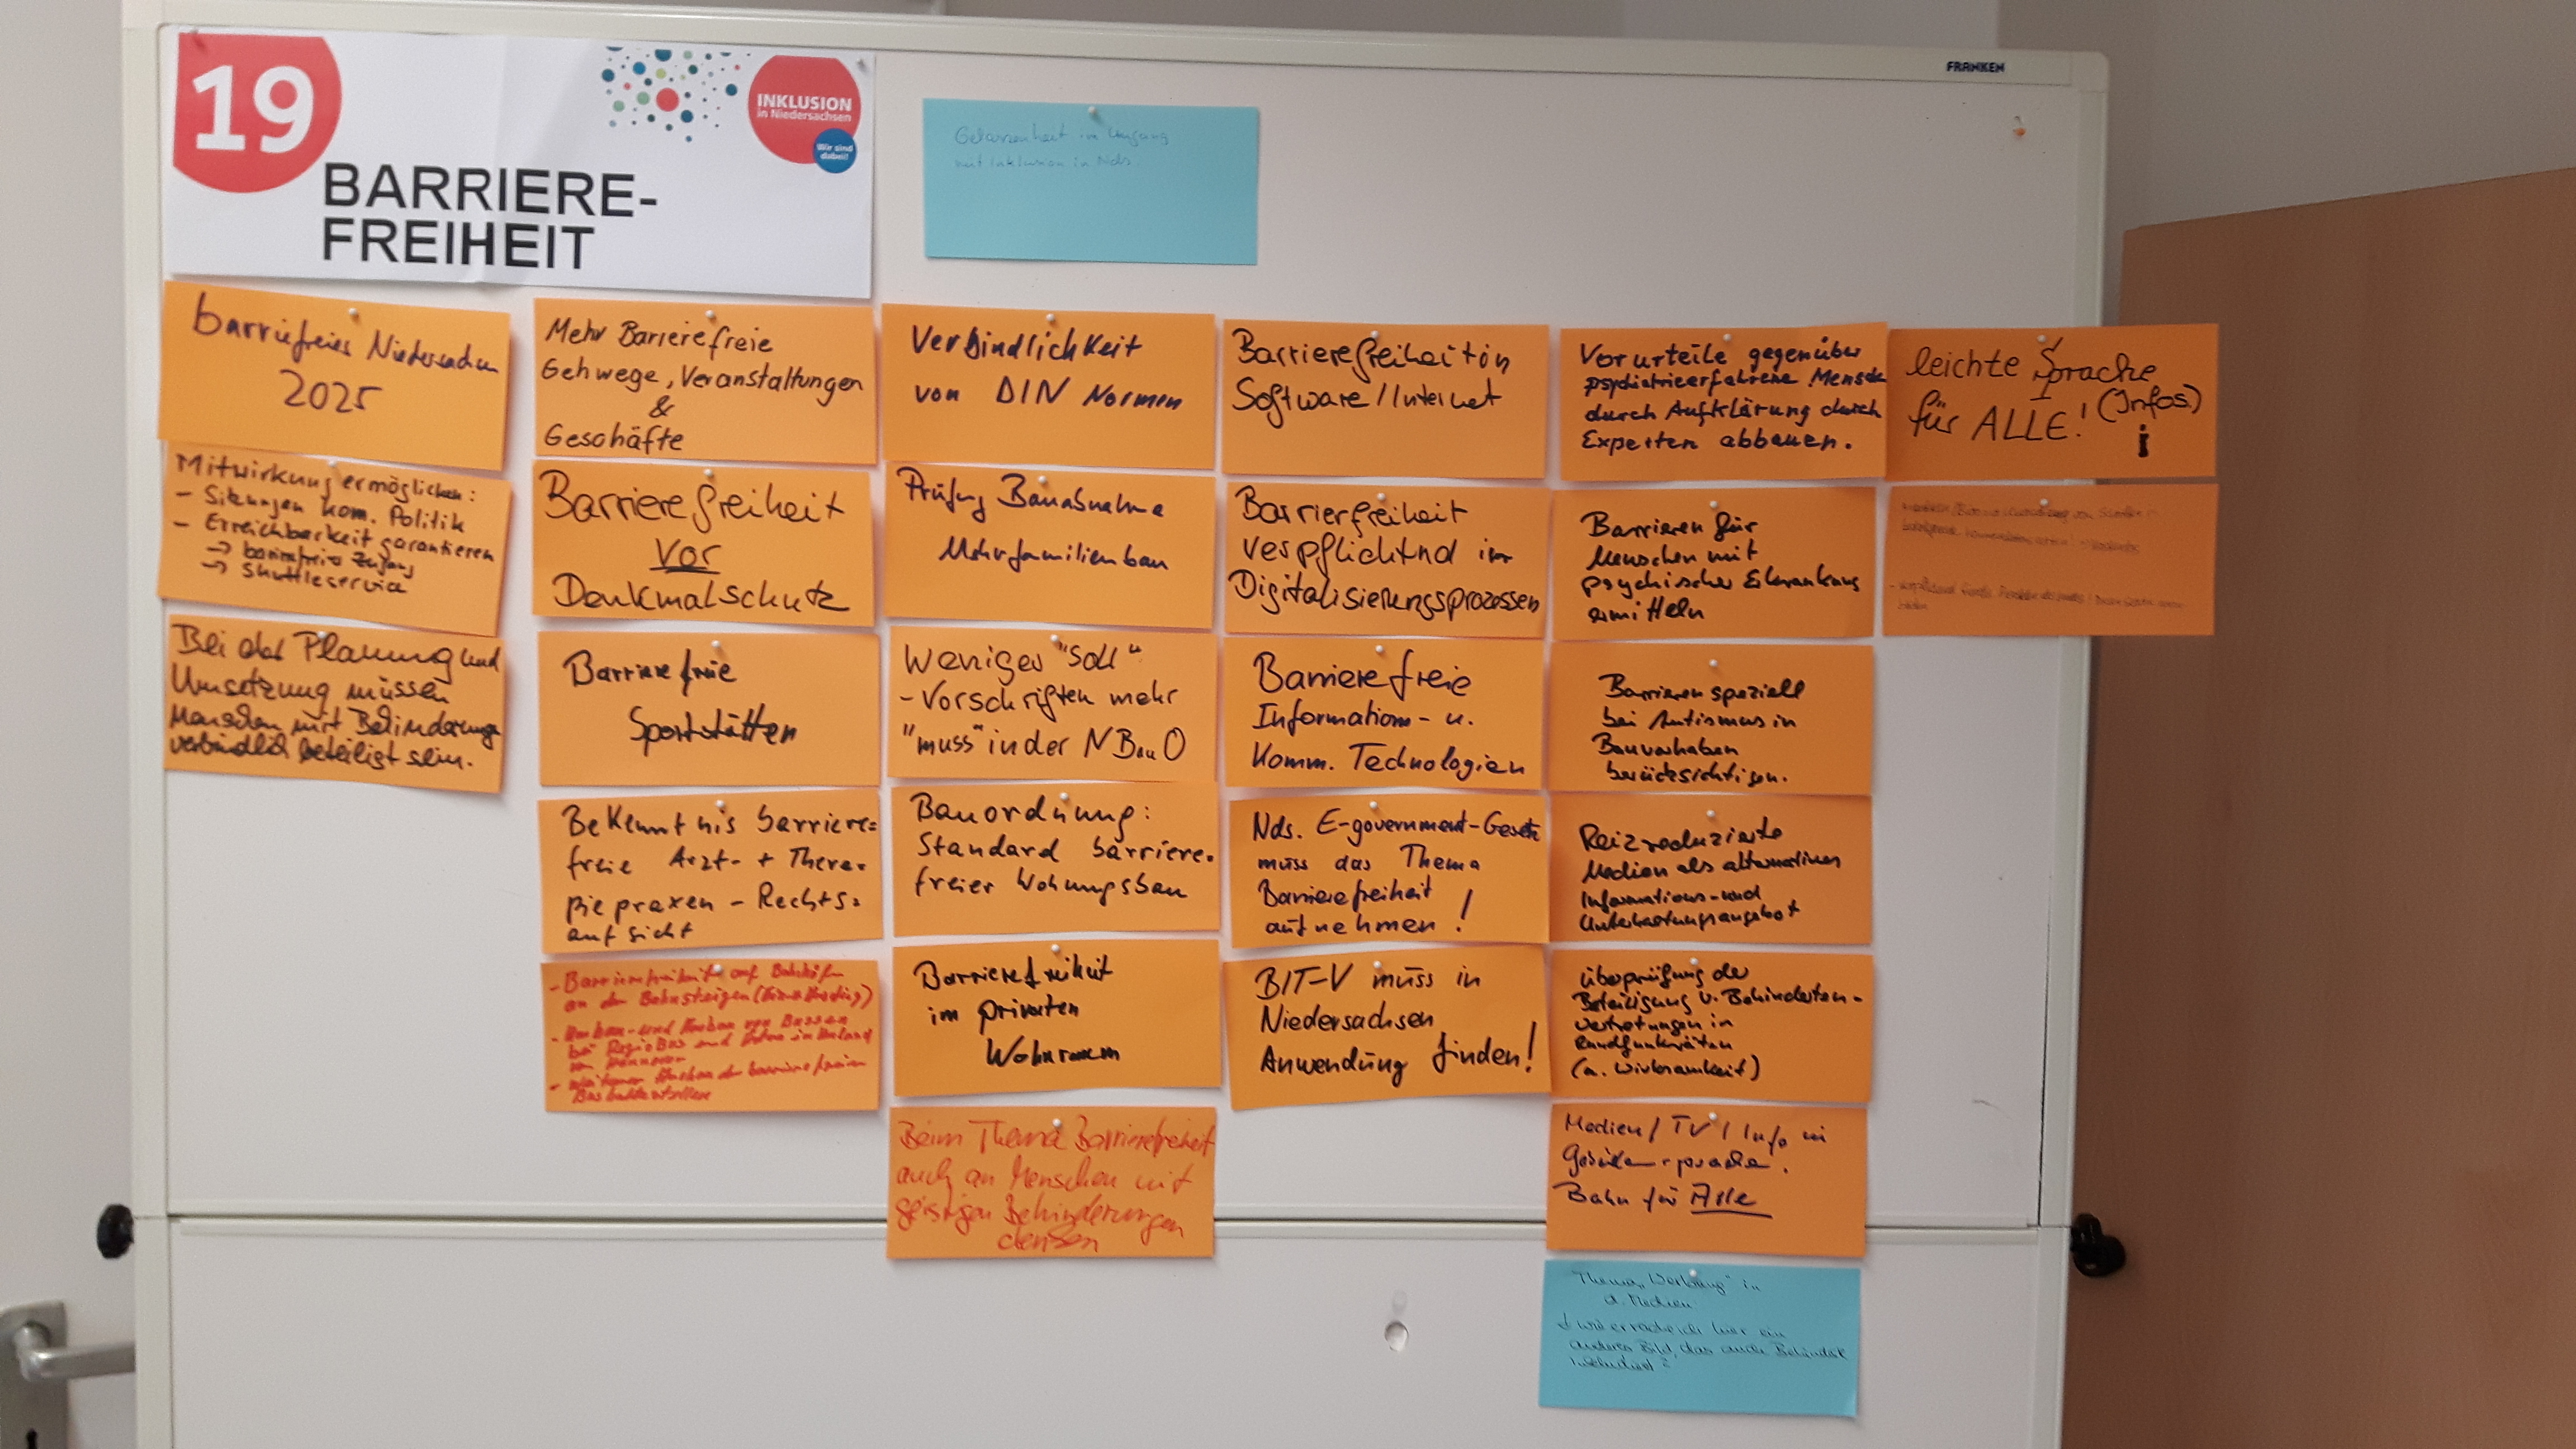 19
INKLUSION
in Niedersachsen
Wir sind
dabei!
BARRIERE-
FREIHEIT
FRANKEN
Gelassenheit im Umgang
mit Inklusion in Nds
barriefreies Niedersachsen
2025
Mitwirkung ermöglichen:
- Sitzungen kom. Politik
- Erreichbarkeit garantieren
→ barrierefreier Zugang
→ Shuttleservice
Bei der Planung und
Umsetzung müssen
Menschen mit Behinderung
verbindlich beteiligt sein.
Mehr Barrierefreie
Gehwege, Veranstaltungen
&
Geschäfte
Barrierefreiheit
vor
Denkmalschutz
Barrierefreie
Sportstätten
Bekenntnis barriere=
freie Arzt- + Thera-
piepraxen - Rechts=
aufsicht
- Barrierefreiheit auf Bahnhöfen
an den Bahnsteigen
- Umbau- und Neubau von Bussen
bei RegioBus und in Umland
von Hannover
- weiterer Ausbau der barrierefreien
Bushaltestellen
Verbindlichkeit
von DIN Normen
Prüfung Bauabnahme
Mehrfamilienbau
Weniger "Soll"
- Vorschriften mehr
"muss" in der NBauO
Bauordnung:
Standard barriere-
freier Wohnungsbau
Barrierefreiheit
im privaten
Wohnraum
Beim Thema Barrierefreiheit
auch an Menschen mit
geistigen Behinderungen
denken
Barrierefreiheit in
Software/Internet
Barrierfreiheit
verpflichtnd im
Digitalisierungsprozessen
Barrierefreie
Information- u.
Komm. Technologien
Nds. E-government-Gesetz
muss das Thema
Barrierefreiheit
aufnehmen!
BIT-V muss in
Niedersachsen
Anwendung finden!
Vorurteile gegenüber
psychiatrieerfahrene Mensch
durch Aufklärung durch
Experten abbauen.
Barrieren für
Menschen mit
psychischer Erkrankung
ermitteln
Barrieren speziell
bei Autismus in
Bauvorhaben
berücksichtigen.
Reizreduzierte
Medien als alternatives
Informations- und
Unterhaltungsangebot
Überprüfung der
Beteiligung v. Behinderten-
vertretungen in
Rundfunkräten
(a. Wirksamkeit)
Medien / TV / Info in
Gebärdensprache.
Bahn für Alle
Thema „Werbung" in
d. Medien
wie erreiche ich hier ein
anderes Bild, das auch Behinderte
inkludiert?
leichte Sprache
für ALLE! (Infos)
i